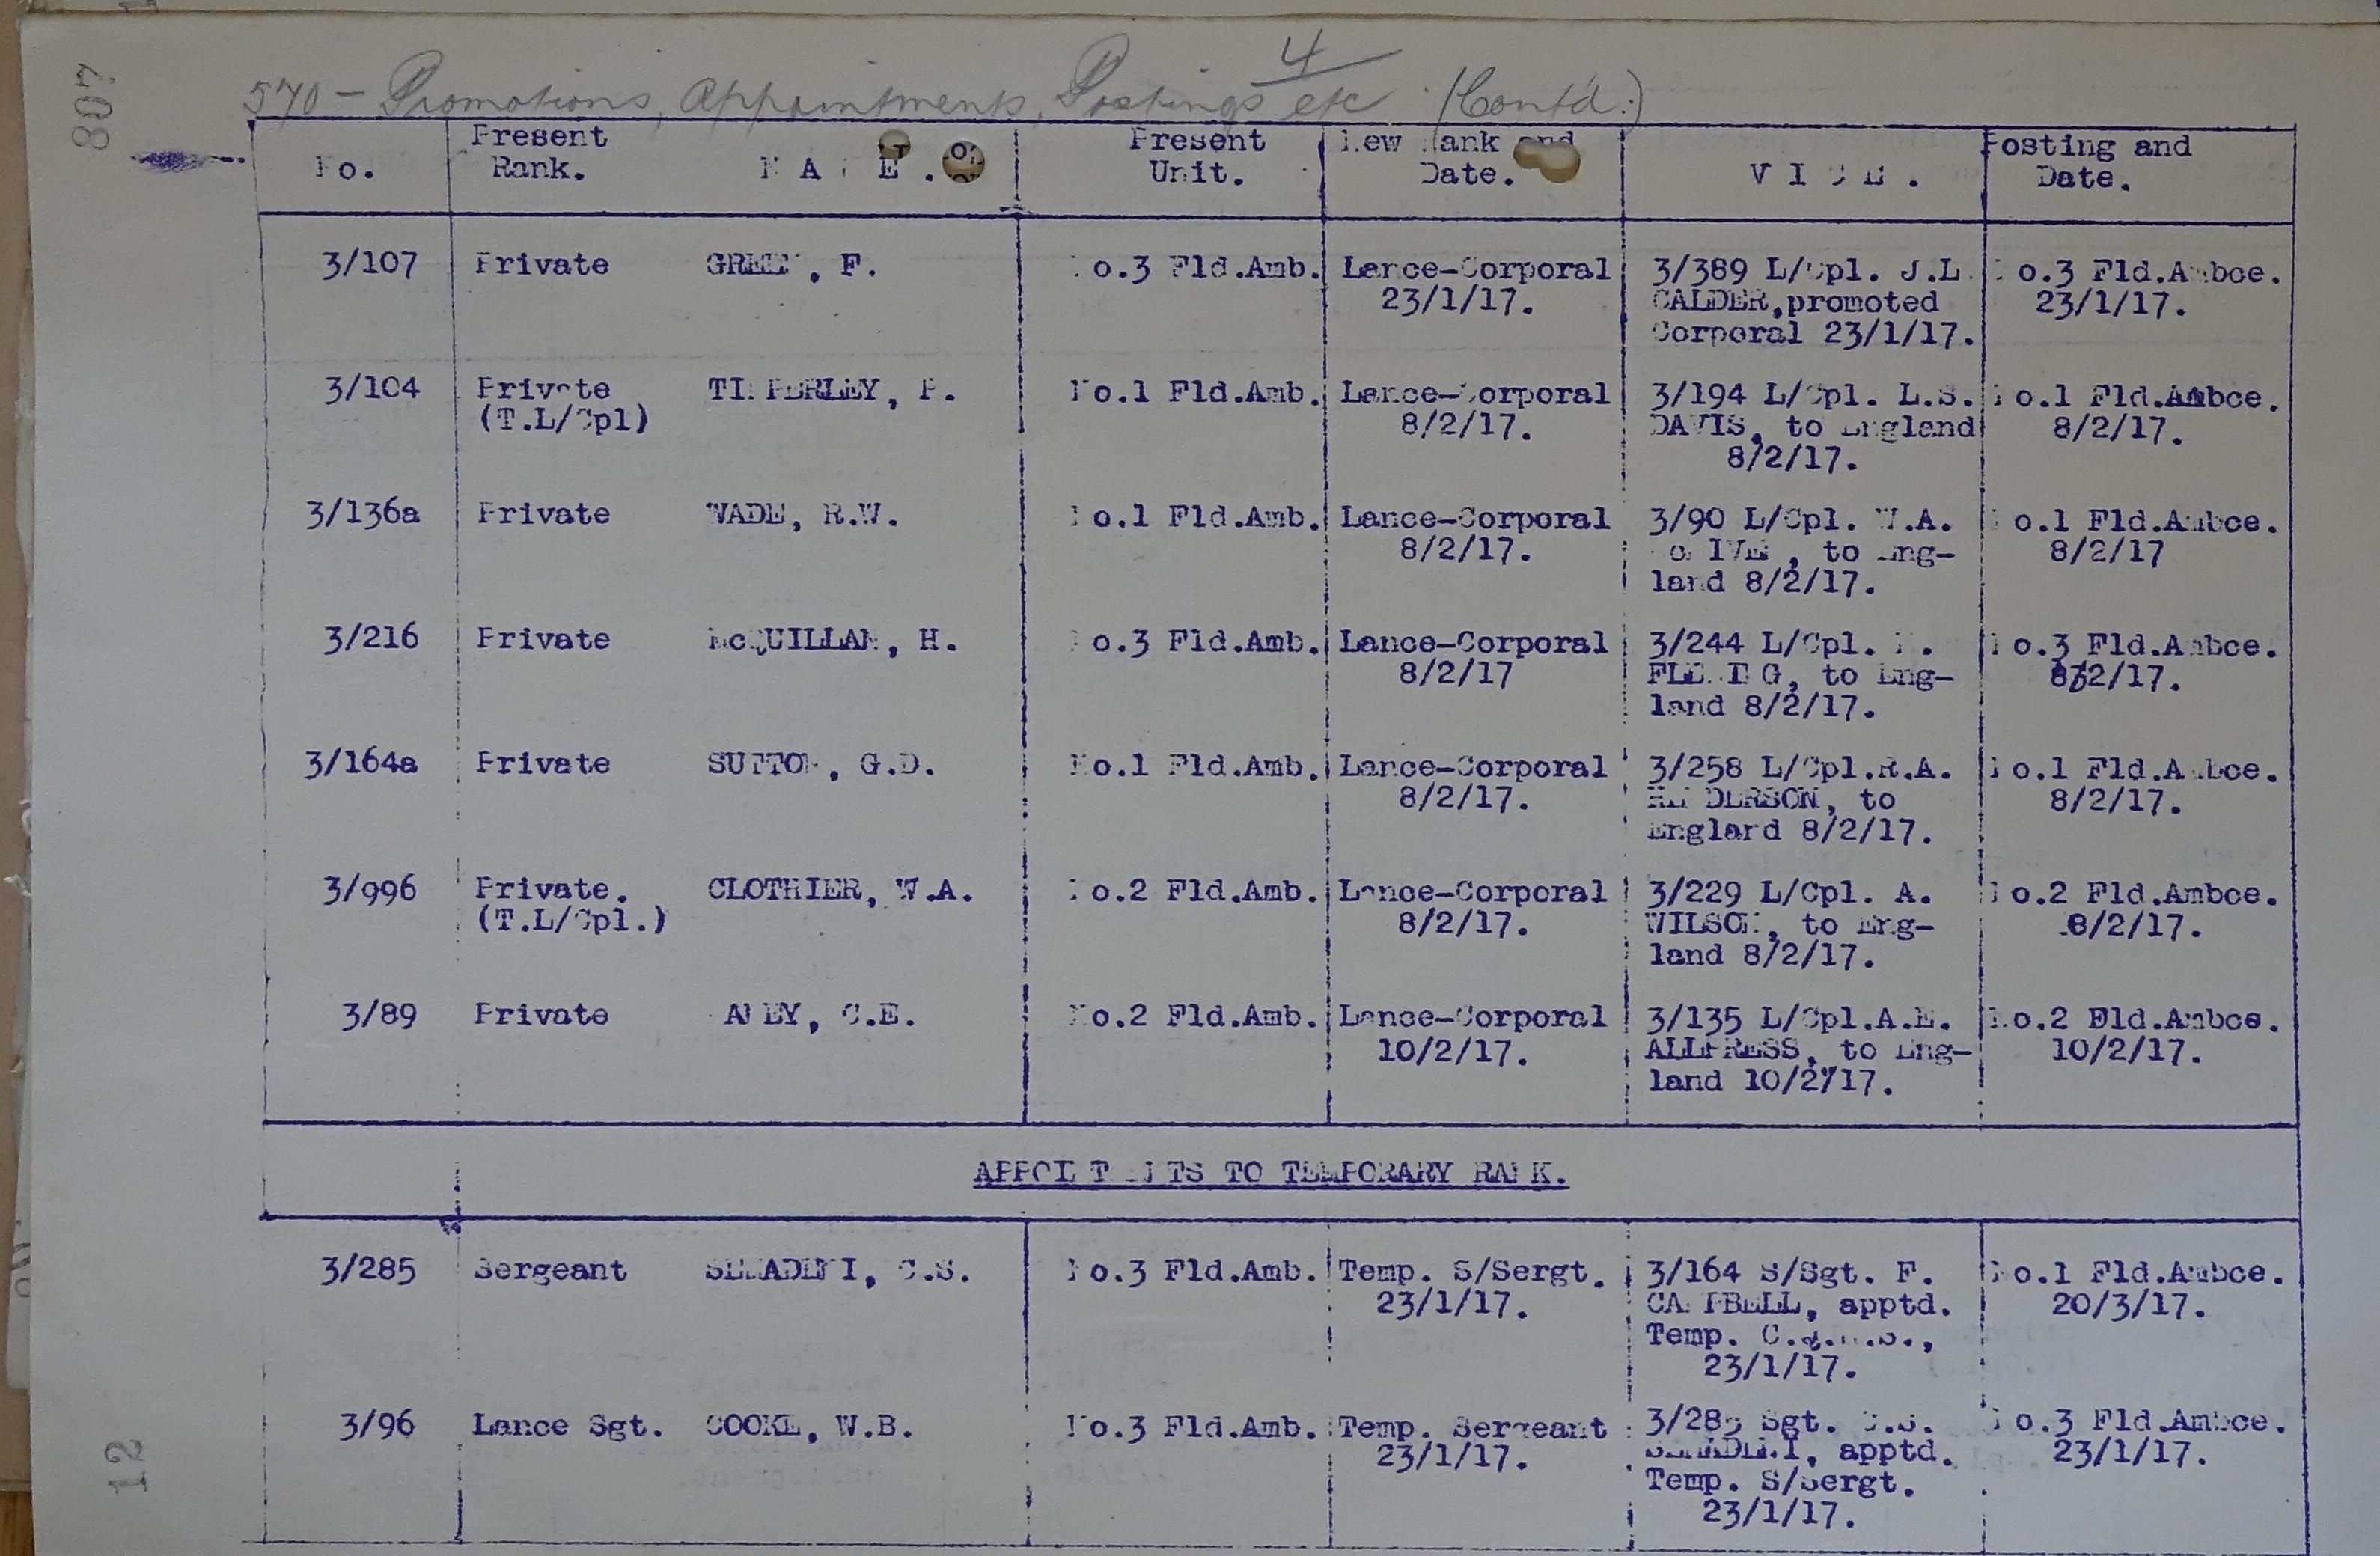 4
807
570 - Promotions, Appointments, Postings etc (Contd:)
No. Present Rank. N A M E. Present Unit. New Rank and Date. V I C E . Posting and Date.
3/107 Private GREEN, F. No.3 Fld.Amb. Lance-Corporal 3/389 L/Cpl. J.L. No.3 Fld.Ambce.
23/1/17. CALDER,promoted 23/1/17.
Corporal 23/1/17.
3/104 Private TIMPERLEY, P. No.1 Fld.Amb. Lance-Corporal 3/194 L/Cpl. L.S. No.1 Fld.Ambce.
(T.L/Cpl) 8/2/17. DAVIS, to England 8/2/17.
8/2/17.
3/136a Private WADE, R.W. No.1 Fld.Amb. Lance-Corporal 3/90 L/Cpl. W.A. No.1 Fld.Ambce.
8/2/17. to Eng- 8/2/17
land 8/2/17.
3/216 Private McQUILLAN, H. No.3 Fld.Amb. Lance-Corporal 3/244 L/Cpl. No.3 Fld.Ambce.
8/2/17 FLEMING, to Eng- 8/2/17.
land 8/2/17.
3/164a Private SUTTON, G.D. No.1 Fld.Amb. Lance-Corporal 3/258 L/Cpl.R.A. No.1 Fld.Ambce.
8/2/17. HENDERSON, to 8/2/17.
England 8/2/17.
3/996 Private. CLOTHIER, W.A. No.2 Fld.Amb. Lance-Corporal 3/229 L/Cpl. A. No.2 Fld.Ambce.
(T.L/Cpl.) 8/2/17. WILSON, to Eng- 8/2/17.
land 8/2/17.
3/89 Private C.E. No.2 Fld.Amb. Lance-Corporal 3/135 L/Cpl.A.E. No.2 Fld.Ambce.
10/2/17. ALLPRESS, to Eng- 10/2/17.
land 10/2/17.
APPOINTMENTS TO TEMPORARY RANK.
3/285 Sergeant SENADENI, C.S. No.3 Fld.Amb. Temp. S/Sergt. 3/164 S/Sgt. F. No.1 Fld.Ambce.
23/1/17. CAMPBELL, apptd. 20/3/17.
Temp. C.Q.M.S.,
23/1/17.
3/96 Lance Sgt. COOKE, W.B. No.3 Fld.Amb. Temp. Sergeant 3/285 Sgt. C.S. No.3 Fld.Ambce.
23/1/17. SENADENI, apptd. 23/1/17.
Temp. S/Sergt.
23/1/17.
12